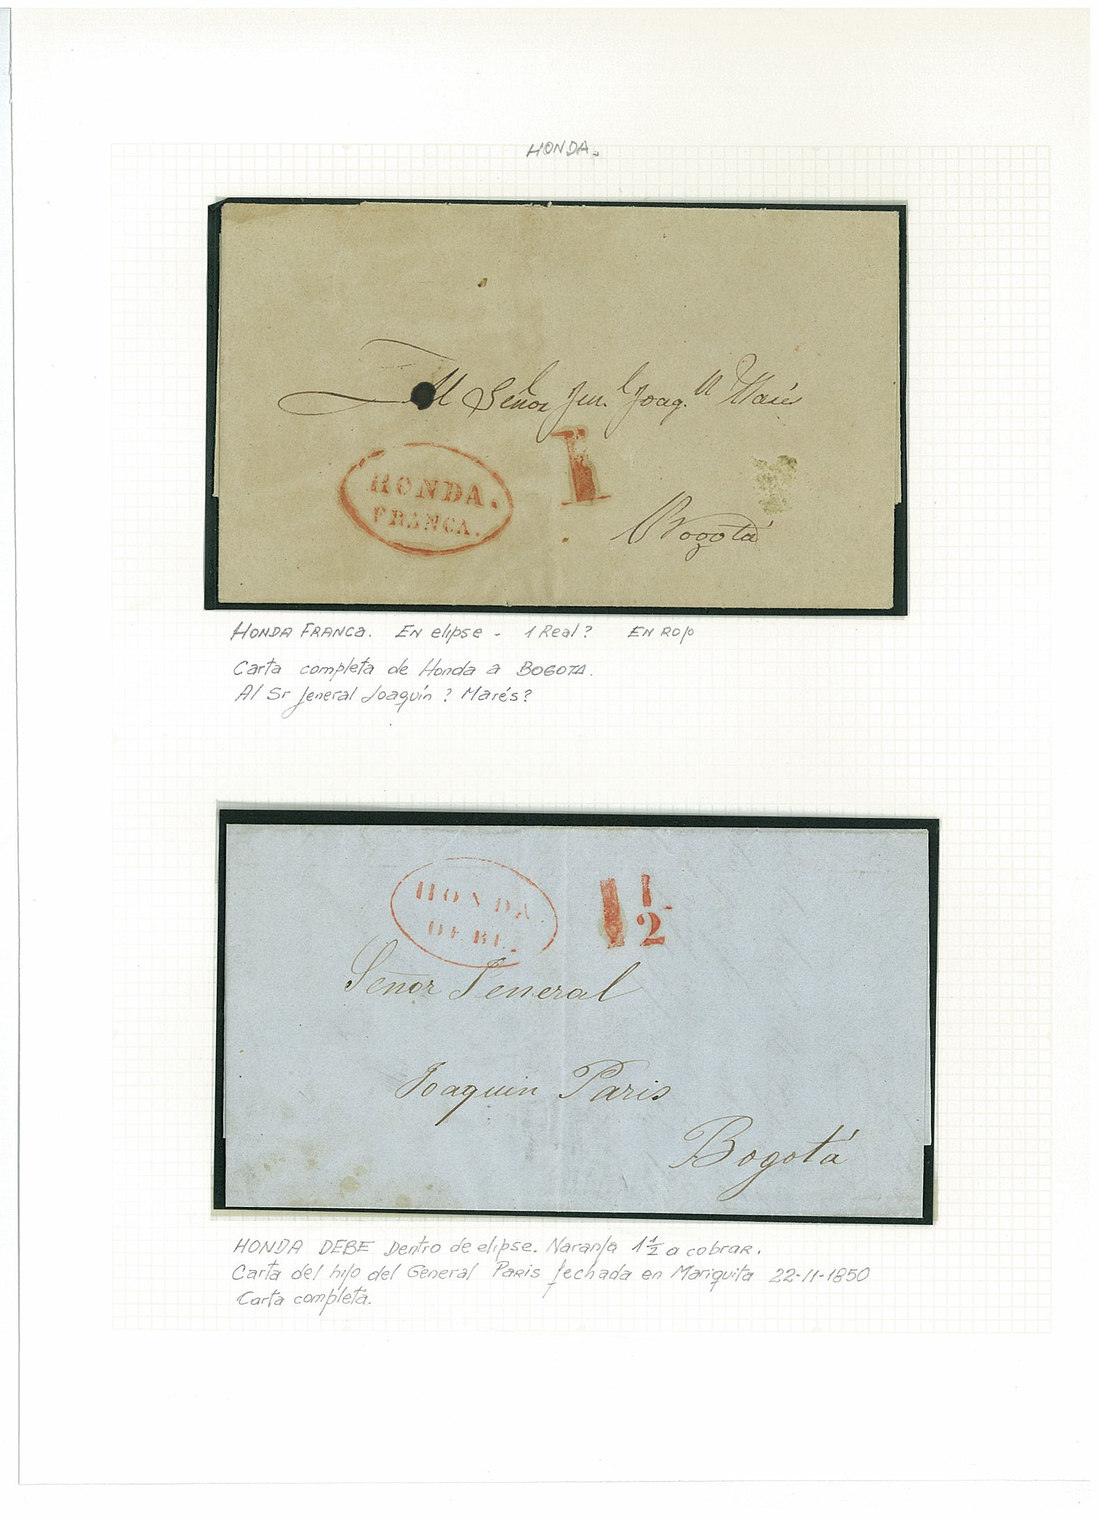 HONDA.
Al Señor Jen.l Joaq.n
HONDA.
FRANCA.
1
Bogotá
HONDA FRANCA. EN elipse - 1 Real? EN ROJO
Carta completa de Honda a BOGOTA.
Al Sr Jeneral Joaquín ? Marés?
HONDA.
DEBE.
1 1/2
Señor Jeneral
Joaquin Paris
Bogotá
HONDA DEBE Dentro de elipse. Naranja 1 1/2 a cobrar.
Carta del hijo del General PARIS fechada en Mariquita 22-11-1850
Carta completa.